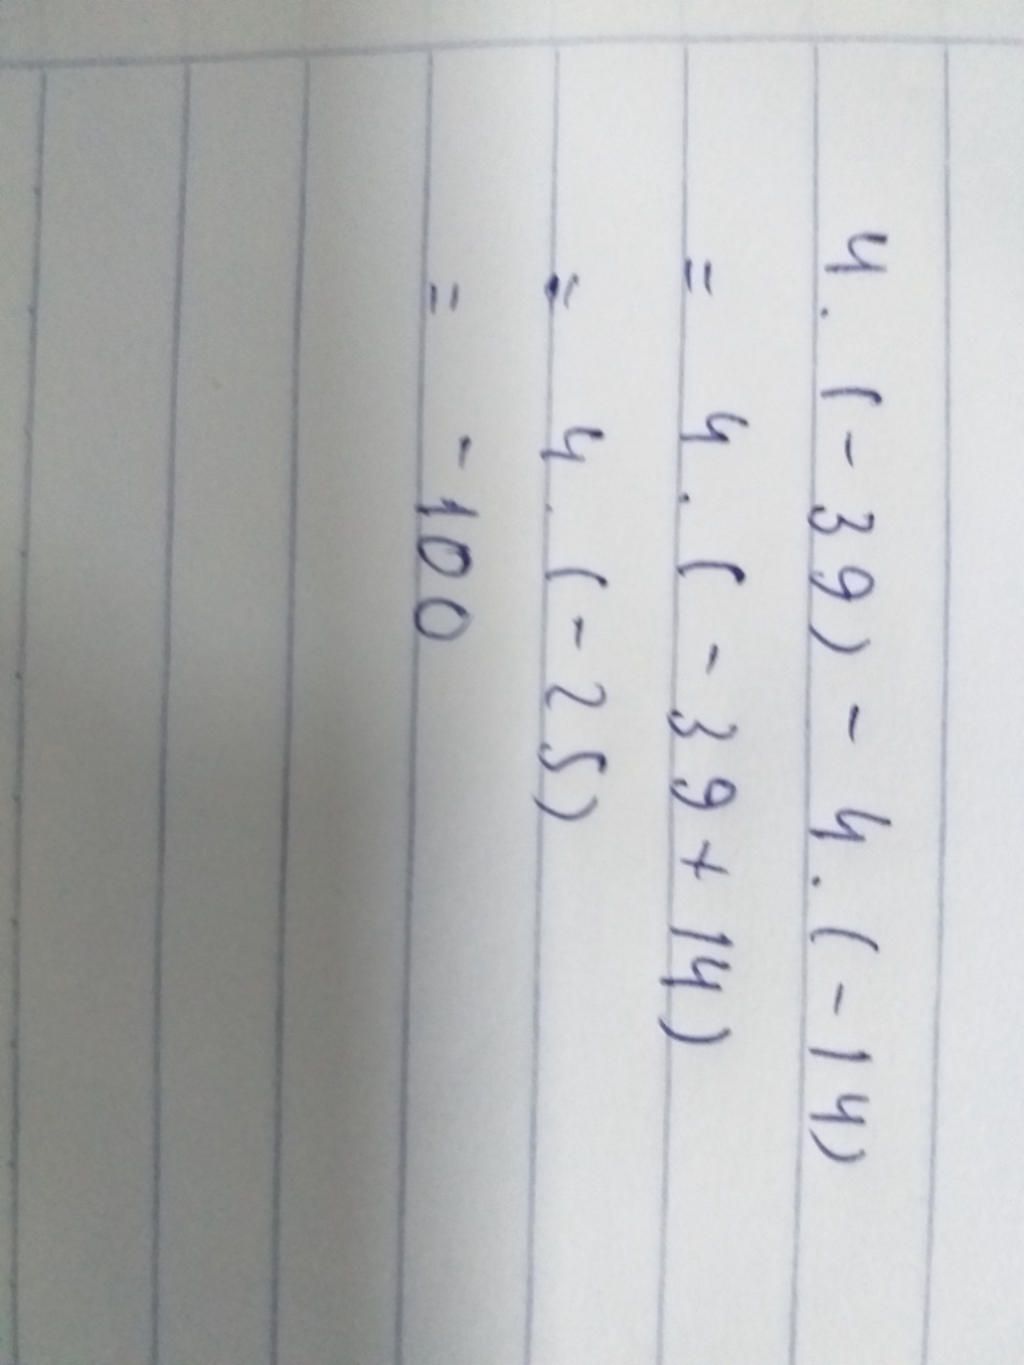 4. (-39) - 4. (-14)
= 4. (-39 + 14)
= 4. (-25)
= -100